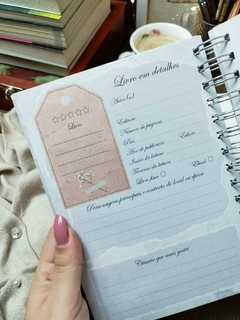 Livro em detalhes
Livro
Autor(a)
Editora
Número de páginas
País
Edição
Ano de publicação
Início da leitura
Término da leitura
Livro físico
Ebook
Personagens principais e contexto do local ou época
Citação que mais gostei